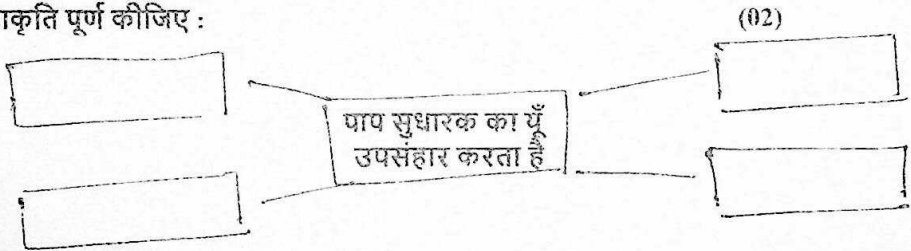 ाकृति पूर्ण कीजिए :
(02)
पाप सुधारक का यूँ
उपसंहार करता है